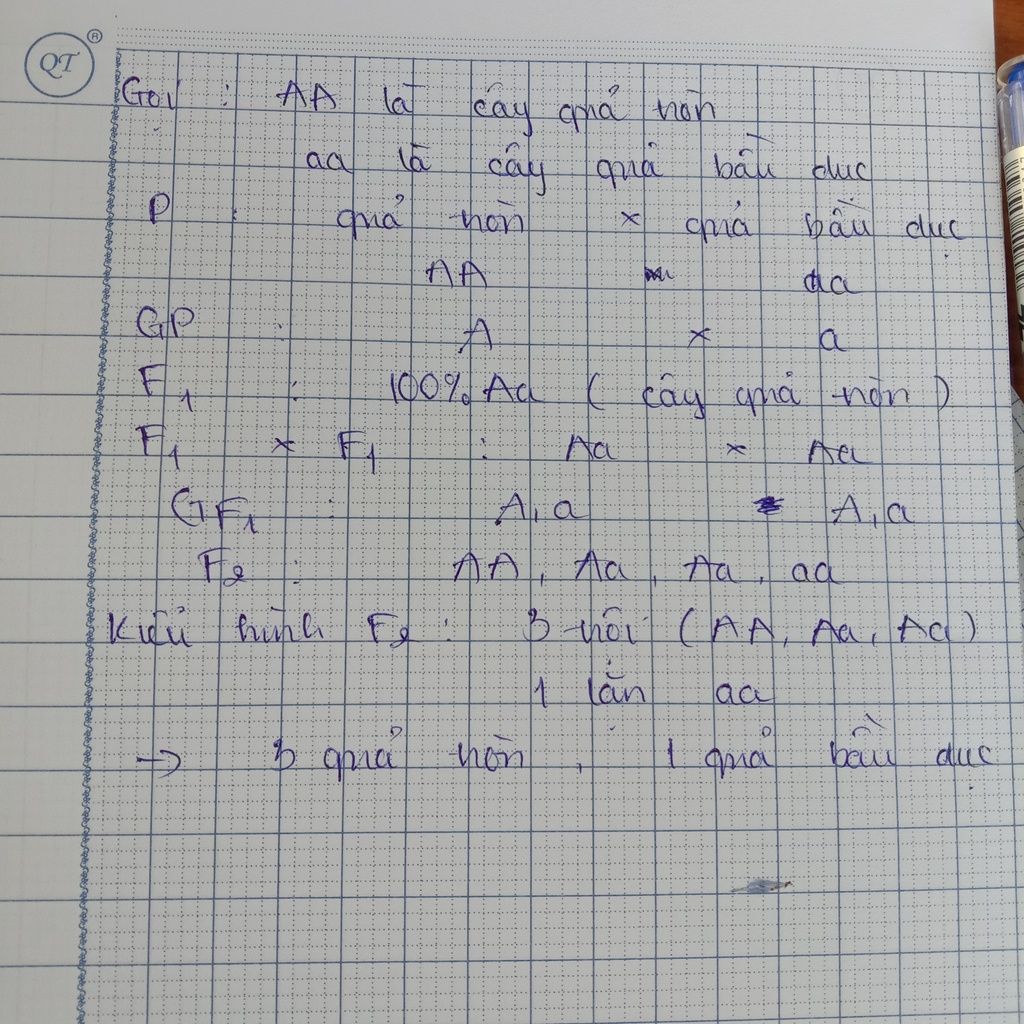 QT ®
Gọi : AA là cây quả tròn
aa là cây quả bầu dục
P : quả tròn × quả bầu dục
AA aa
GP : A × a
F1 : 100% Aa ( cây quả tròn )
F1 × F1 : Aa × Aa
GF1 : A, a A, a
F2 : AA, Aa, Aa, aa
Kiểu hình F2 : 3 trội (AA, Aa, Aa)
1 lặn aa
→ 3 quả tròn , 1 quả bầu dục